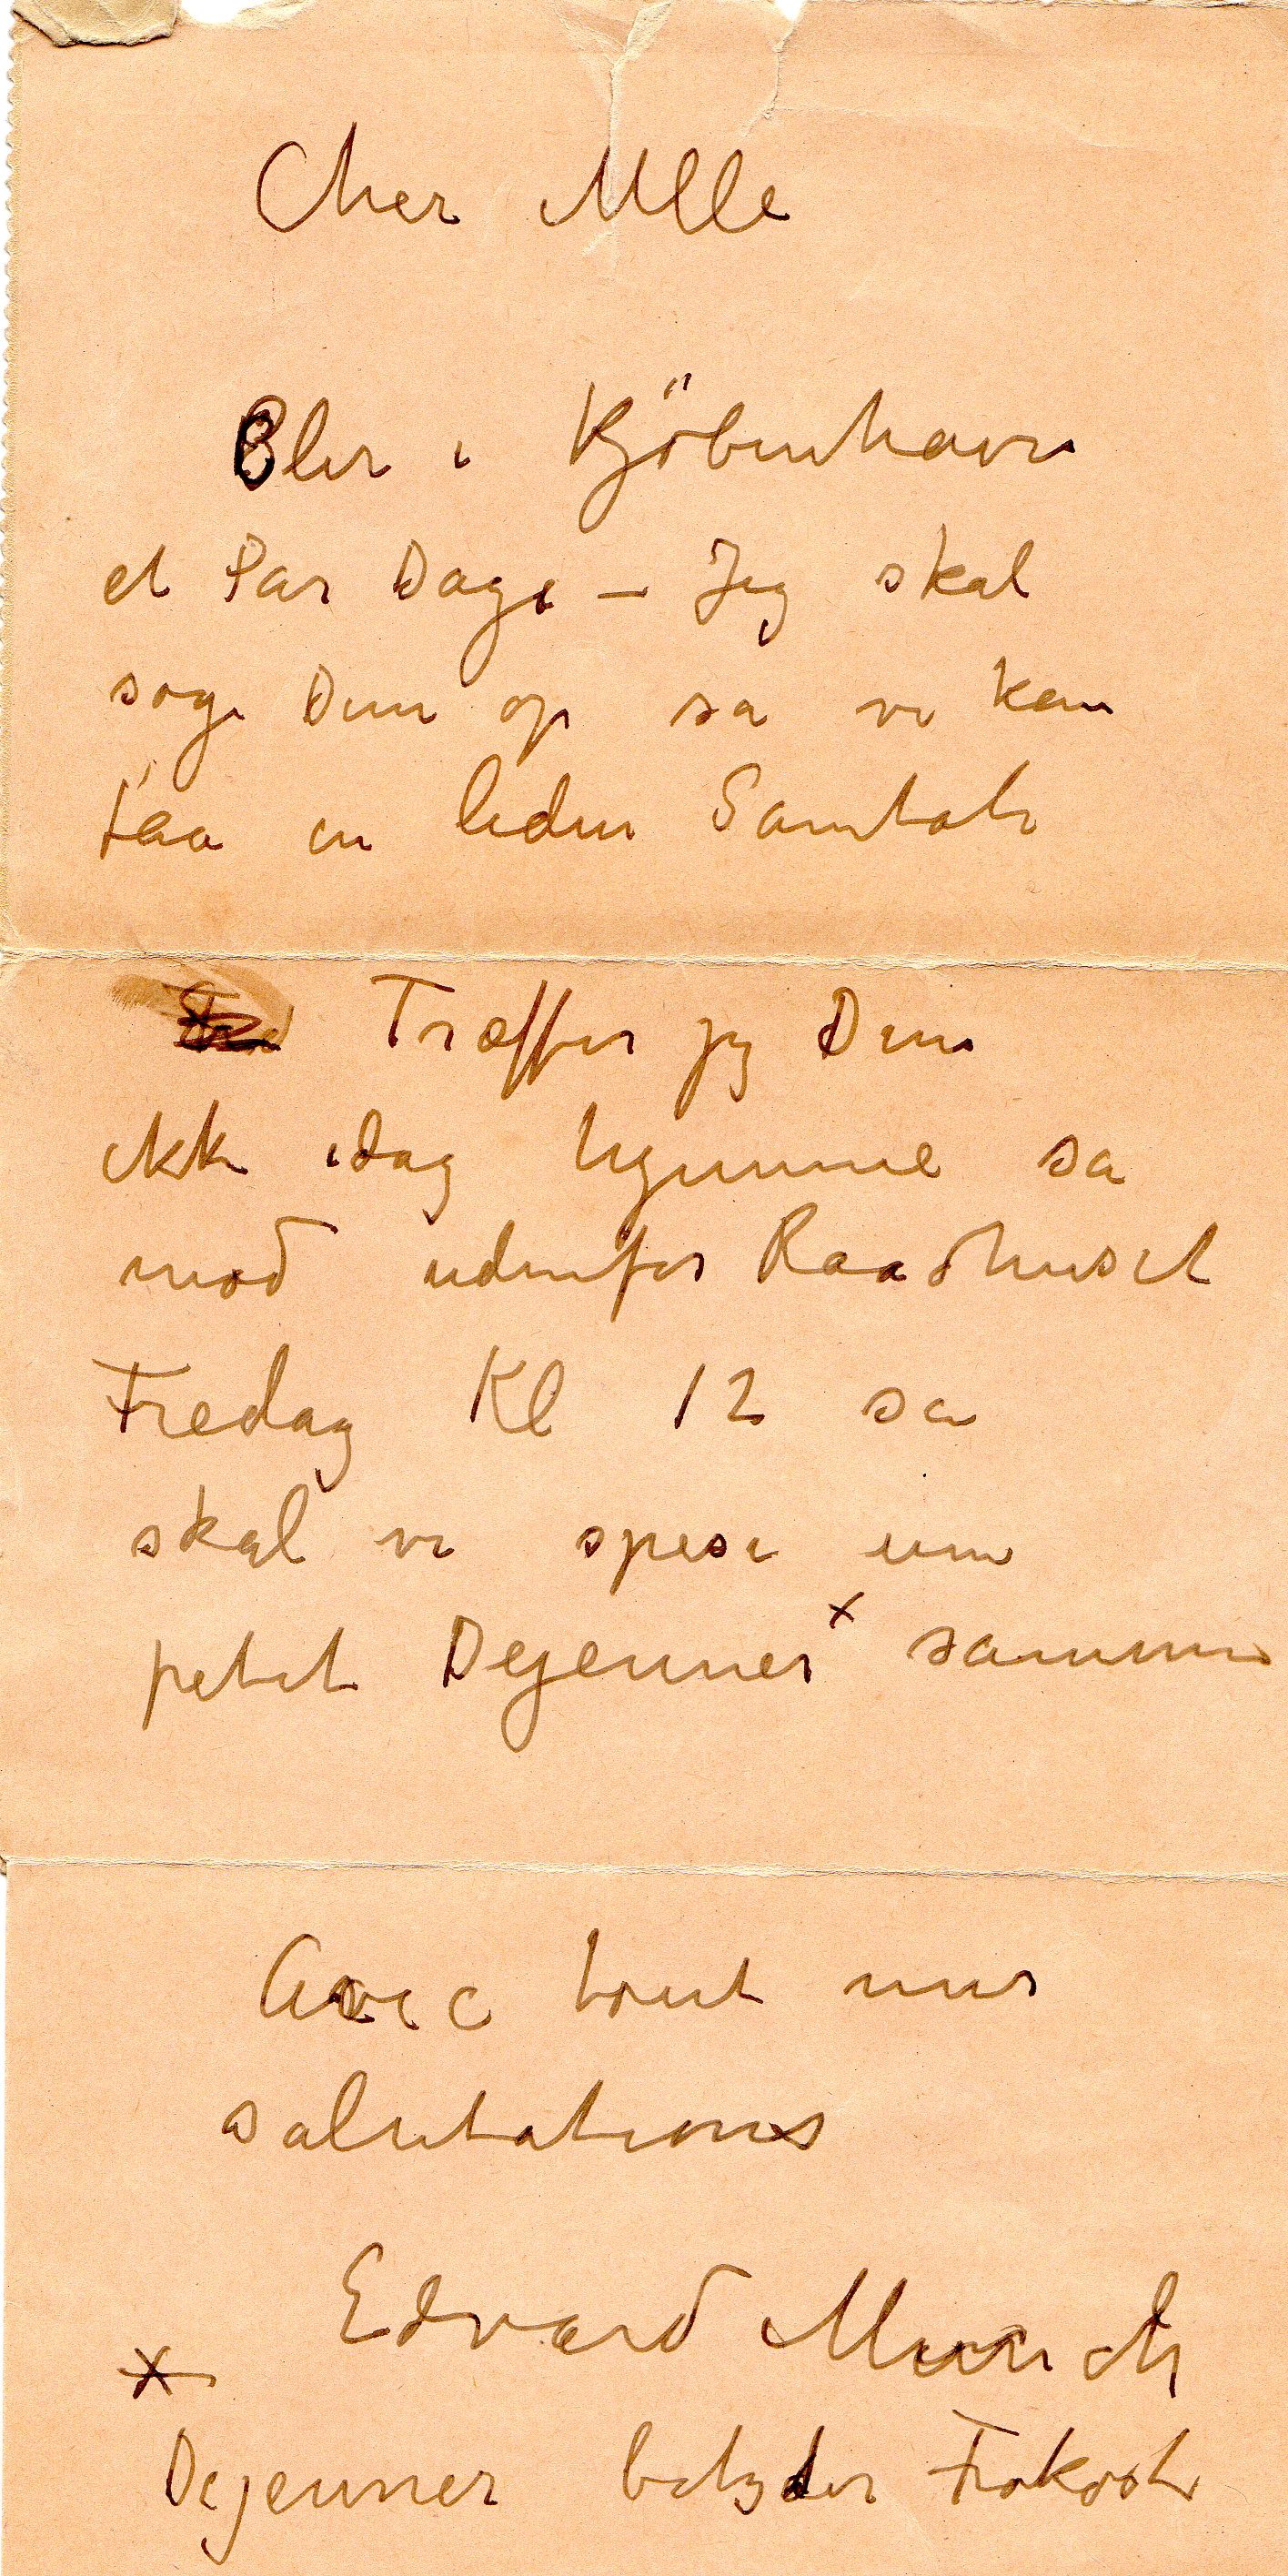 Cher Mlle
Bler i Kjöbenhavn
et Par Dage – Jeg skal
søge Dem op sa vi kan
faa en liden Samtale
Træffer jeg Dem
ikke idag hjemme sa
mød udenfor Raadhuset
Fredag Kl 12 sa
skal vi spise une
petit Dejeuner x sammen
Avec tout mes
salutations
Edvard Munch
x
Dejeuner betyder Frokost